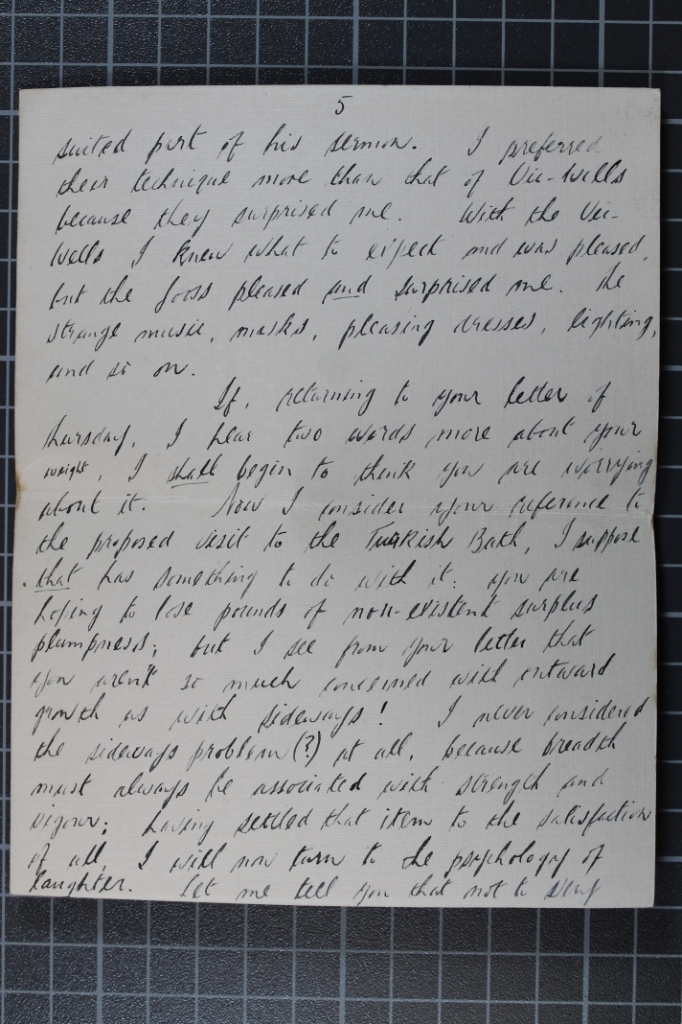 5
suited part of his sermon. I preferred
their technique more than that of Vic-Wells
because they surprised me. With the Vic-
Wells I knew what to expect and was pleased,
but the Jooss pleased and surprised me. The
strange music, masks, pleasing dresses, lighting,
and so on.
If, returning to your letter of
Thursday, I hear two words more about your
weight, I shall begin to think you are worrying
about it. Now I consider your reference to
the proposed visit to the Turkish Bath, I suppose
that has something to do with it: you are
hoping to lose pounds of non-existent surplus
plumpness; but I see from your letter that
you aren't so much concerned with outward
growth as with sideways! I never considered
the sideways problem (?) at all, because breadth
must always be associated with strength and
vigour; having settled that item to the satisfaction
of all, I will now turn to the psychology of
laughter. Let me tell you that not to